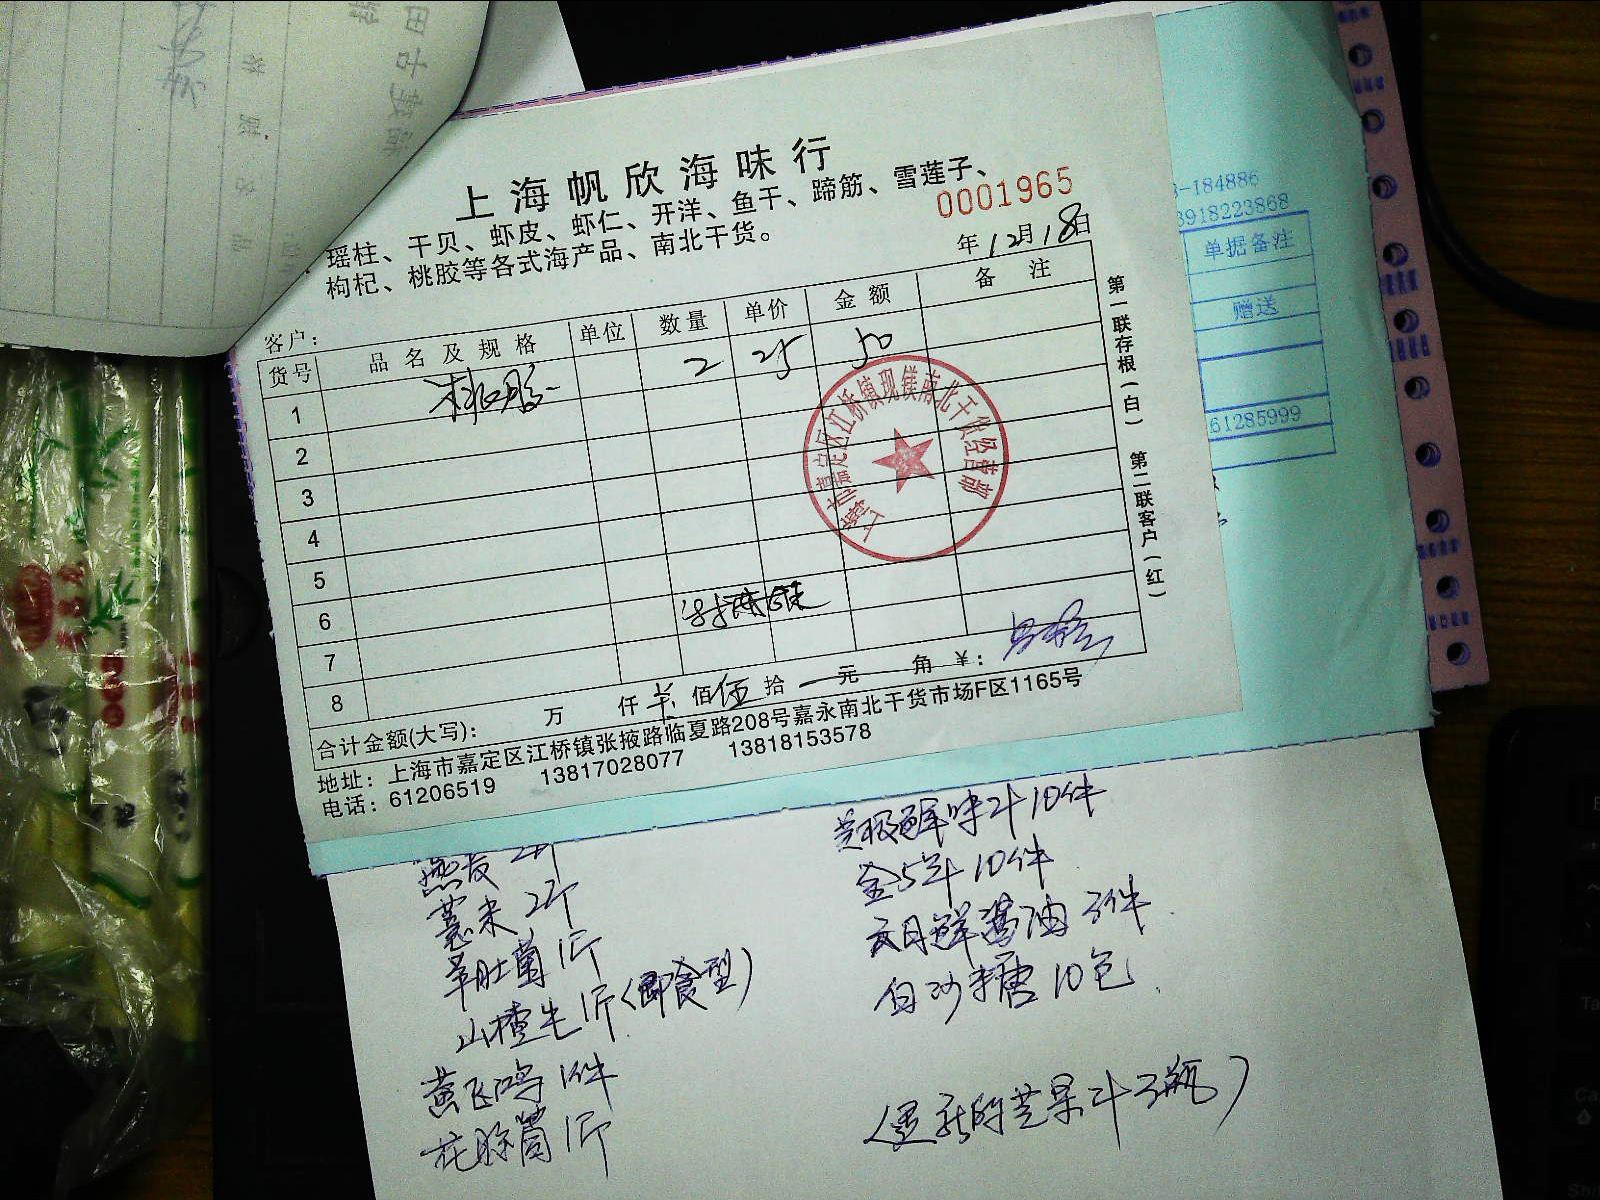 上海帆欣海味行
瑶柱、干贝、虾皮、虾仁、开洋、鱼干、蹄筋、雪莲子、
枸杞、桃胶等各式海产品、南北干货。
0001965
年12月18日
客户：
货号 品名及规格 单位 数量 单价 金额 备注
1 桃胶 2 25 50
2
3
4
5
6
7
8
合计金额(大写)： 万 仟 佰伍拾 元 角 ¥：
地址：上海市嘉定区江桥镇张掖路临夏路208号嘉永南北干货市场F区1165号
电话：61206519 13817028077 13818153578
第一联存根(白) 第二联客户(红)
上海市嘉定区江桥镇现镁南北干货经营部
-184886
3918223868
单据备注
赠送
61285999
薏米 2斤
羊肚菌 1斤
山楂 1斤(即食型)
黄飞鸿 1件
1斤
鲜味汁 10件
10件
鲜酱油 3件
白沙糖 10包
芒果汁 3瓶)